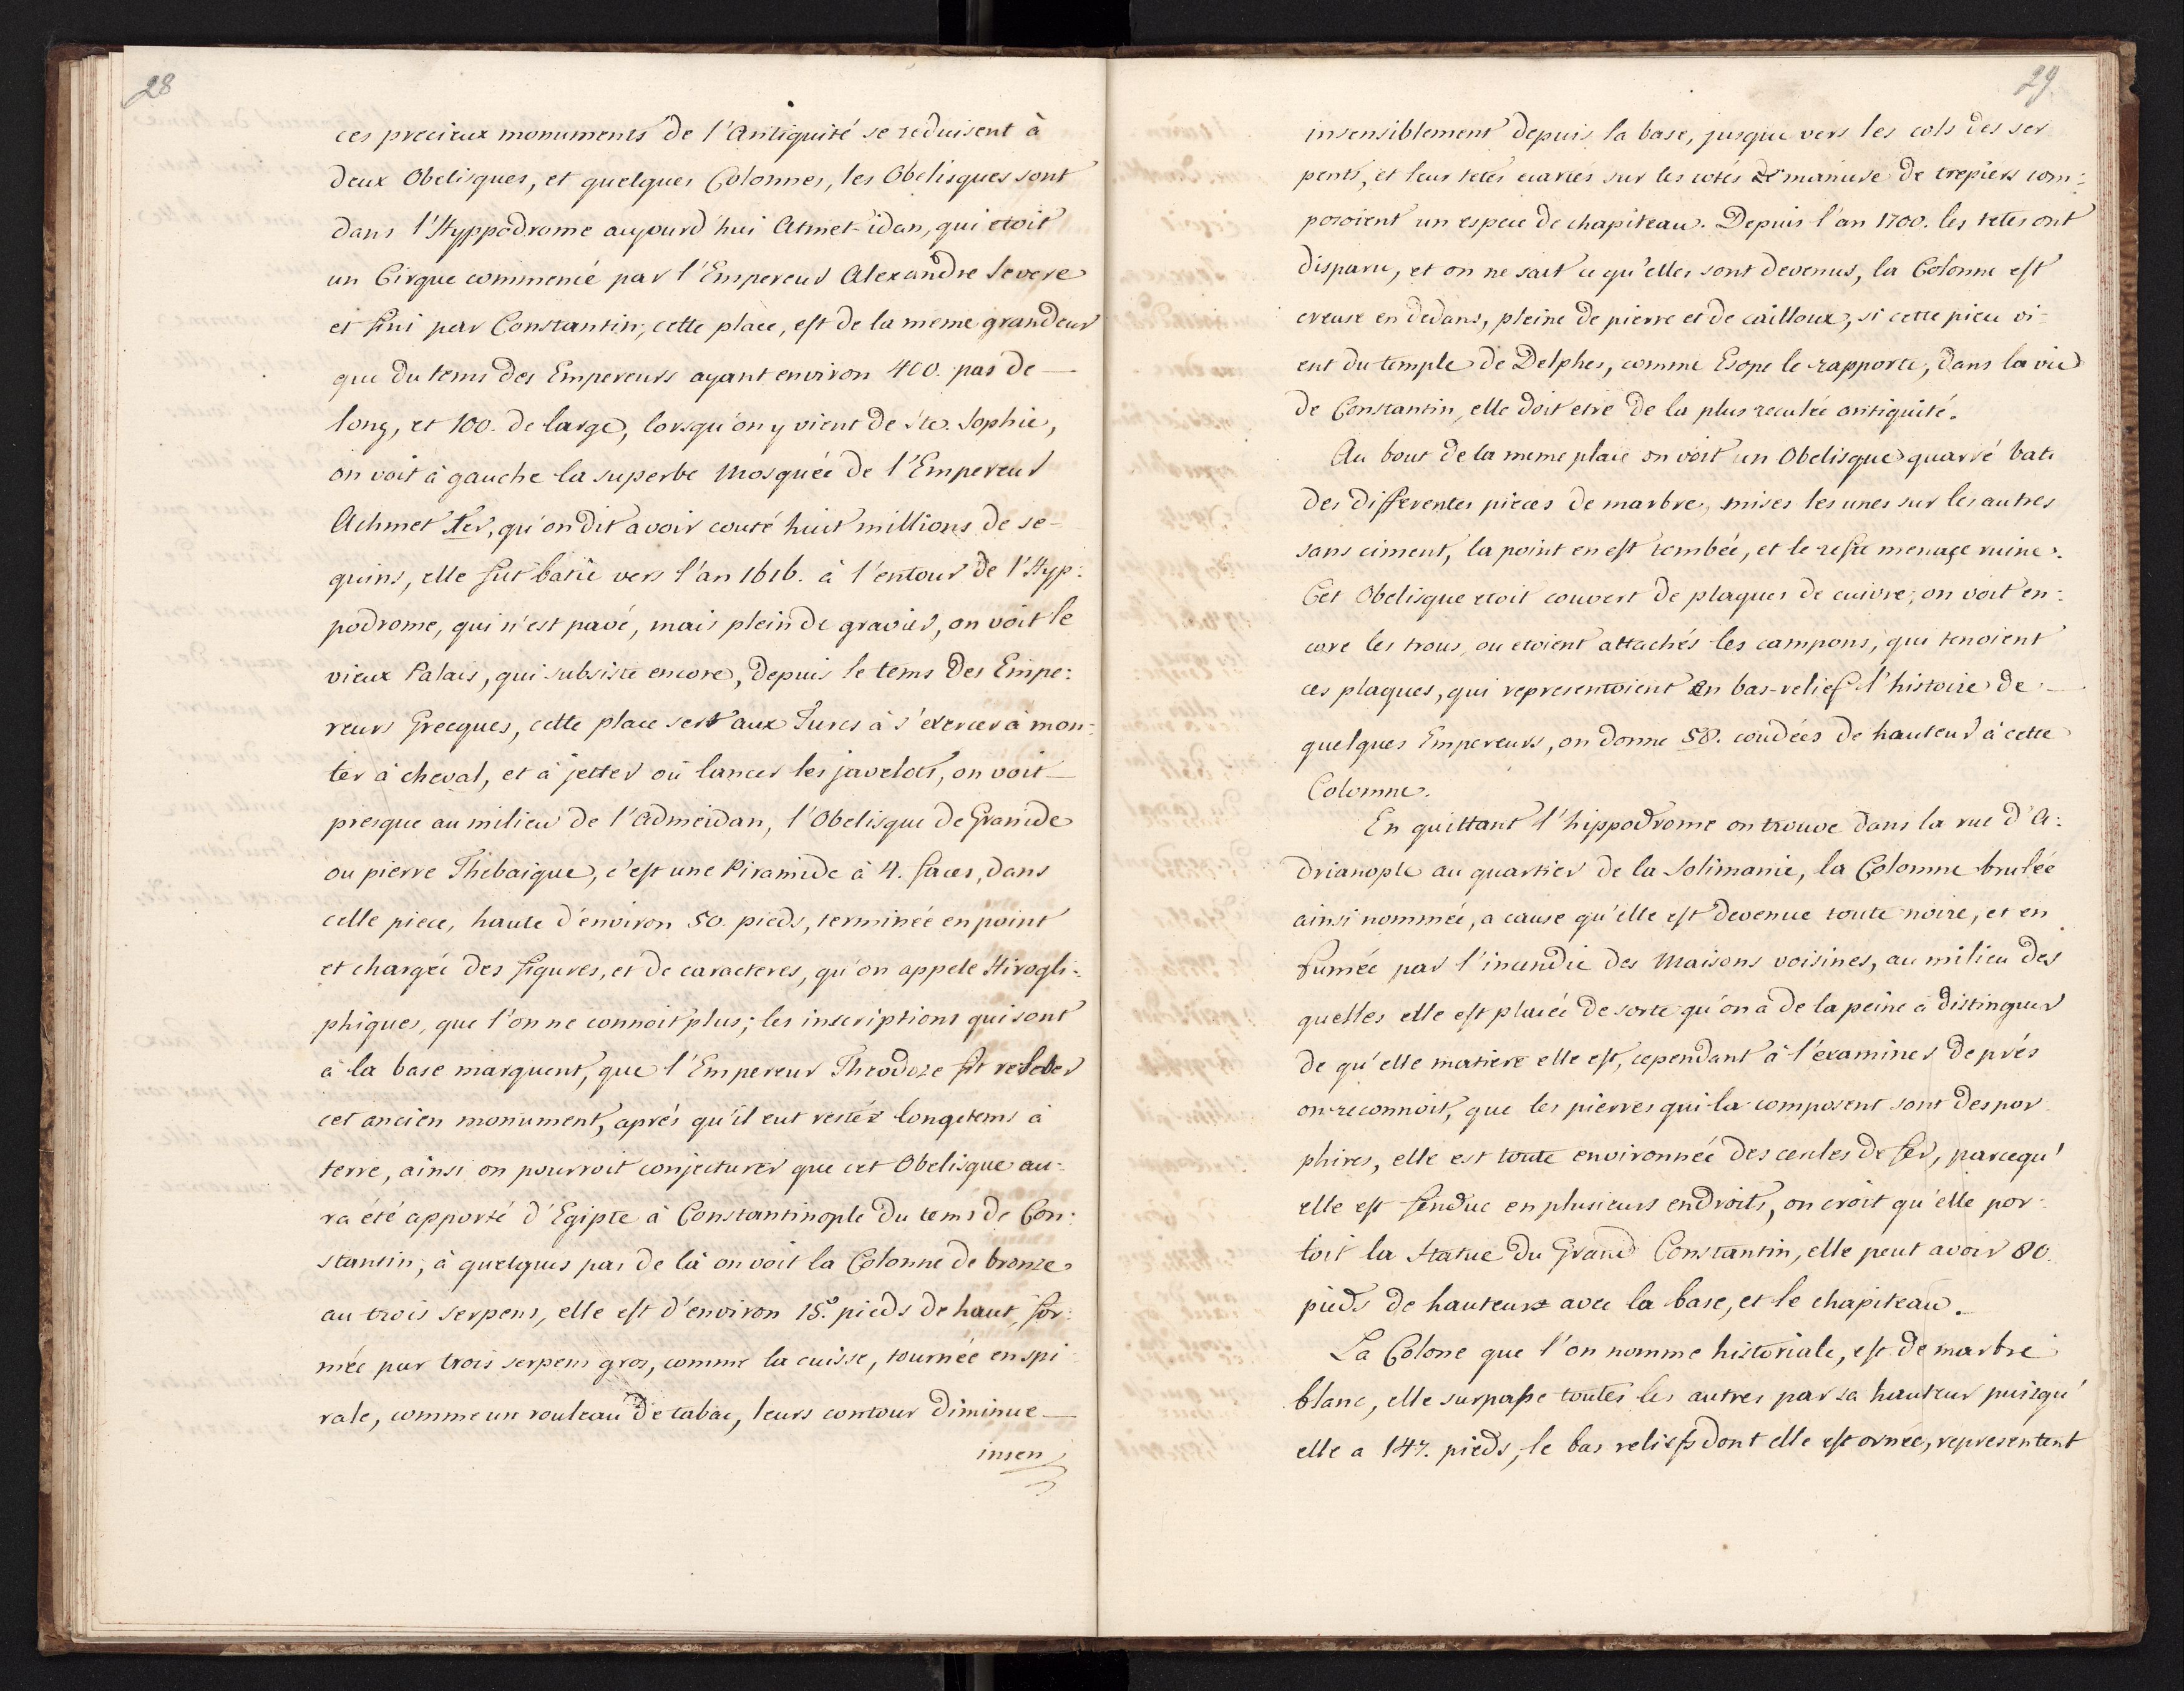 28
ces precieux monuments de l'Antiquité se reduisent à
deux Obelisques, et quelques Colonnes, les Obelisques sont
dans l'Hyppodrome aujourd'hui Atmet-idan, qui etoit
un Cirque commencé par l'Empereur Alexandre Severe
et fini par Constantin; cette place, est de la meme grandeur
que du tems des Empereurs ayant environ 400. pas de —
long, et 100. de large, lorsqu'on y vient de Ste. Sophie,
on voit à gauche la superbe Mosquée de l'Empereur
Achmet Ier, qu'on dit avoir couté huit millions de se-
quins, elle fut batie vers l'an 1616. à l'entour de l'Hyp:
podrome, qui n'est pavé, mais plein de gravier, on voit le
vieux Palais, qui subsiste encore, depuis le tems des Empe:
reurs Grecques, cette place sert aux Turcs à s'exercer à mon:
ter à cheval, et à jetter où lancer les javelots, on voit —
presque au milieu de l'Admeidan, l'Obelisque de Granide
ou pierre Thebaique, c'est une Piramide à 4. faces, dans
celle piece, haute d'environ 50. pieds, terminée en point
et chargée des figures, et de caracteres, qu'on appele Hirogli:
phiques, que l'on ne connoit plus; les inscriptions qui sont
à la base marquent, que l'Empereur Theodore fit relever
cet ancien monument, aprés qu'il eut restéz longetems à
terre, ainsi on pourroit conjecturer que cet Obelisque au:
ra été apporté d'Egipte à Constantinople du tems de Con:
stantin; à quelques pas de là on voit la Colonne de bronze
au trois serpens, elle est d'environ 15. pieds de haut, for:
mée par trois serpens gros, comme la cuisse, tournée en spi:
rale, comme un rouleau de tabac, leurs contour diminue —
insen
29.
insensiblement depuis la base, jusque vers les cols des ser
pents, et leur tetes ecartés sur les cotés de maniere de trepiers com:
posoient un espece de chapiteau. Depuis l'an 1700. les tetes ont
disparu, et on ne sait ce qu'elles sont devenus, la Colonne est
creuse en dedans, pleine de pierre et de cailloux, si cette piece vi-
ent du temple de Delphes, comme Esope le rapporte, dans la vie
de Constantin, elle doit etre de la plus reculée antiquité.
Au bout de la meme place on voit un Obelisque quarré bati
des differentes pieces de marbre, mises les unes sur les autres
sans ciment, la point en est tombée, et le reste menaçe ruine.
Cet Obelisque etoit couvert de plaques de cuivre; on voit en:
core les trous, ou etoient attachés les campons, qui tenoient
ces plaques, qui representoient en bas-relief l'histoire de —
quelques Empereurs, on donne 58. coudées de hauteur à cette
Colomne.
En quittant l'hippodrome on trouve dans la rue d'A:
drianople au quartier de la Solimanie, la Colomne brulée
ainsi nommée, a cause qu'elle est devenue toute noire, et en
fumée par l'incendie des Maisons voisines, au milieu des
quelles elle est placée de sorte qu'on a de la peine à distinguer
de qu'elle matiere elle est, cependant à l'examiner de prés
on reconnoit, que les pierres qui la composent sont des por
phires, elle est toute environnée des cercles de fer, parcequ'
elle est fendue en plusieurs endroits, on croit qu'elle por-
toit la Statue du Grand Constantin, elle peut avoir 80.
pieds de hauteurs avec la base, et le chapiteau.
La Colone que l'on nomme historiale, est de marbre
blanc, elle surpasse toutes les autres par sa hauteur puisqu'
elle a 147. pieds, le bas reliefs dont elle est ornée, representent